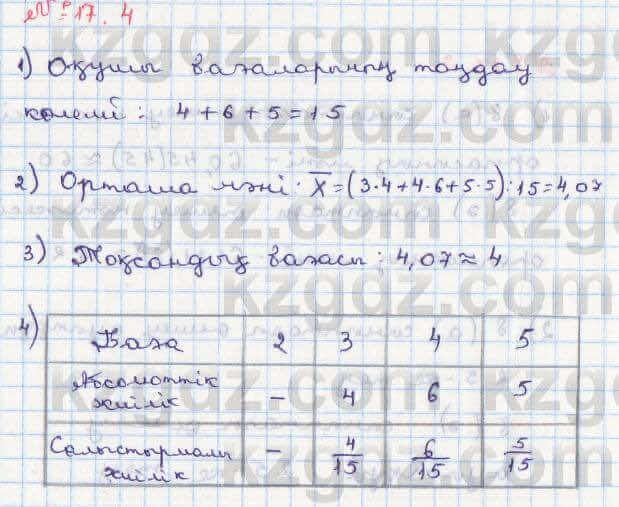 № 17. 4
1) Оқушы бағаларының таңдау
көлемі: 4+6+5=15
2) Орташа мәні: X̅=(3·4+4·6+5·5):15=4,07
3) Тоқсандық бағасы: 4,07≈4
4)
Баға 2 3 4 5
Абсолюттік жиілік – 4 6 5
Салыстырмалы жиілік – 4/15 6/15 5/15
kzgdz.com